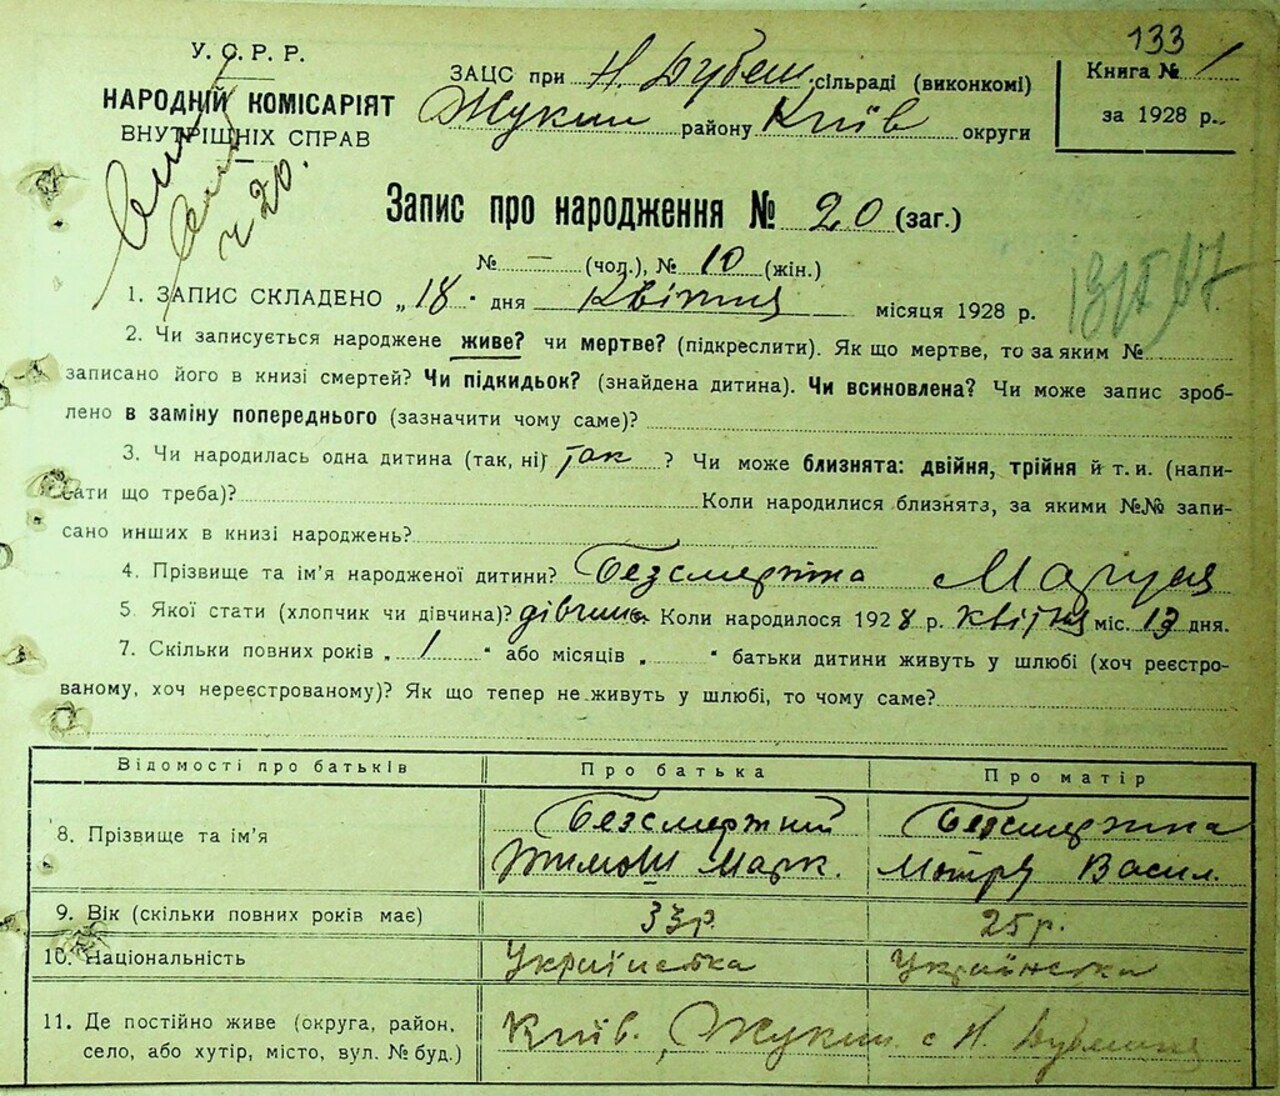 133
У. С. Р. Р.
НАРОДНІЙ КОМІСАРІЯТ
ВНУТРІШНІХ СПРАВ
ЗАЦС при Н. Дубеш. сільраді (виконкомі)
Жукин району Київ округи
Книга № 1
за 1928 р.
ч 20.
Запис про народження № 20 (заг.)
№ — (чол.), № 10 (жін.)
1. ЗАПИС СКЛАДЕНО „18" дня квітня місяця 1928 р.
2. Чи записується народжене живе? чи мертве? (підкреслити). Як що мертве, то за яким №
записано його в книзі смертей? Чи підкидьок? (знайдена дитина). Чи всиновлена? Чи може запис зроб-
лено в заміну попереднього (зазначити чому саме)?
3. Чи народилась одна дитина (так, ні) так ? Чи може близнята: двійня, трійня й т. и. (напи-
сати що треба)? Коли народилися близнята, за якими №№ запи-
сано инших в книзі народжень?
4. Прізвище та ім'я народженої дитини? Безсмертна Маруся
5 Якої стати (хлопчик чи дівчина)? дівчина Коли народилося 1928 р. квітня міс. 13 дня.
7. Скільки повних років „ 1 " або місяців „ " батьки дитини живуть у шлюбі (хоч реєстро-
ваному, хоч нереєстрованому)? Як що тепер не живуть у шлюбі, то чому саме?
Відомості про батьків Про батька Про матір
8. Прізвище та ім'я Безсмертний Безсмертна
Тимош Марк. Мотря Васил.
9. Вік (скільки повних років має) 33р. 25р.
10. Національність Українська Українська
11. Де постійно живе (округа, район, Київ. Жукин с Н.
село, або хутір, місто, вул. № буд.)